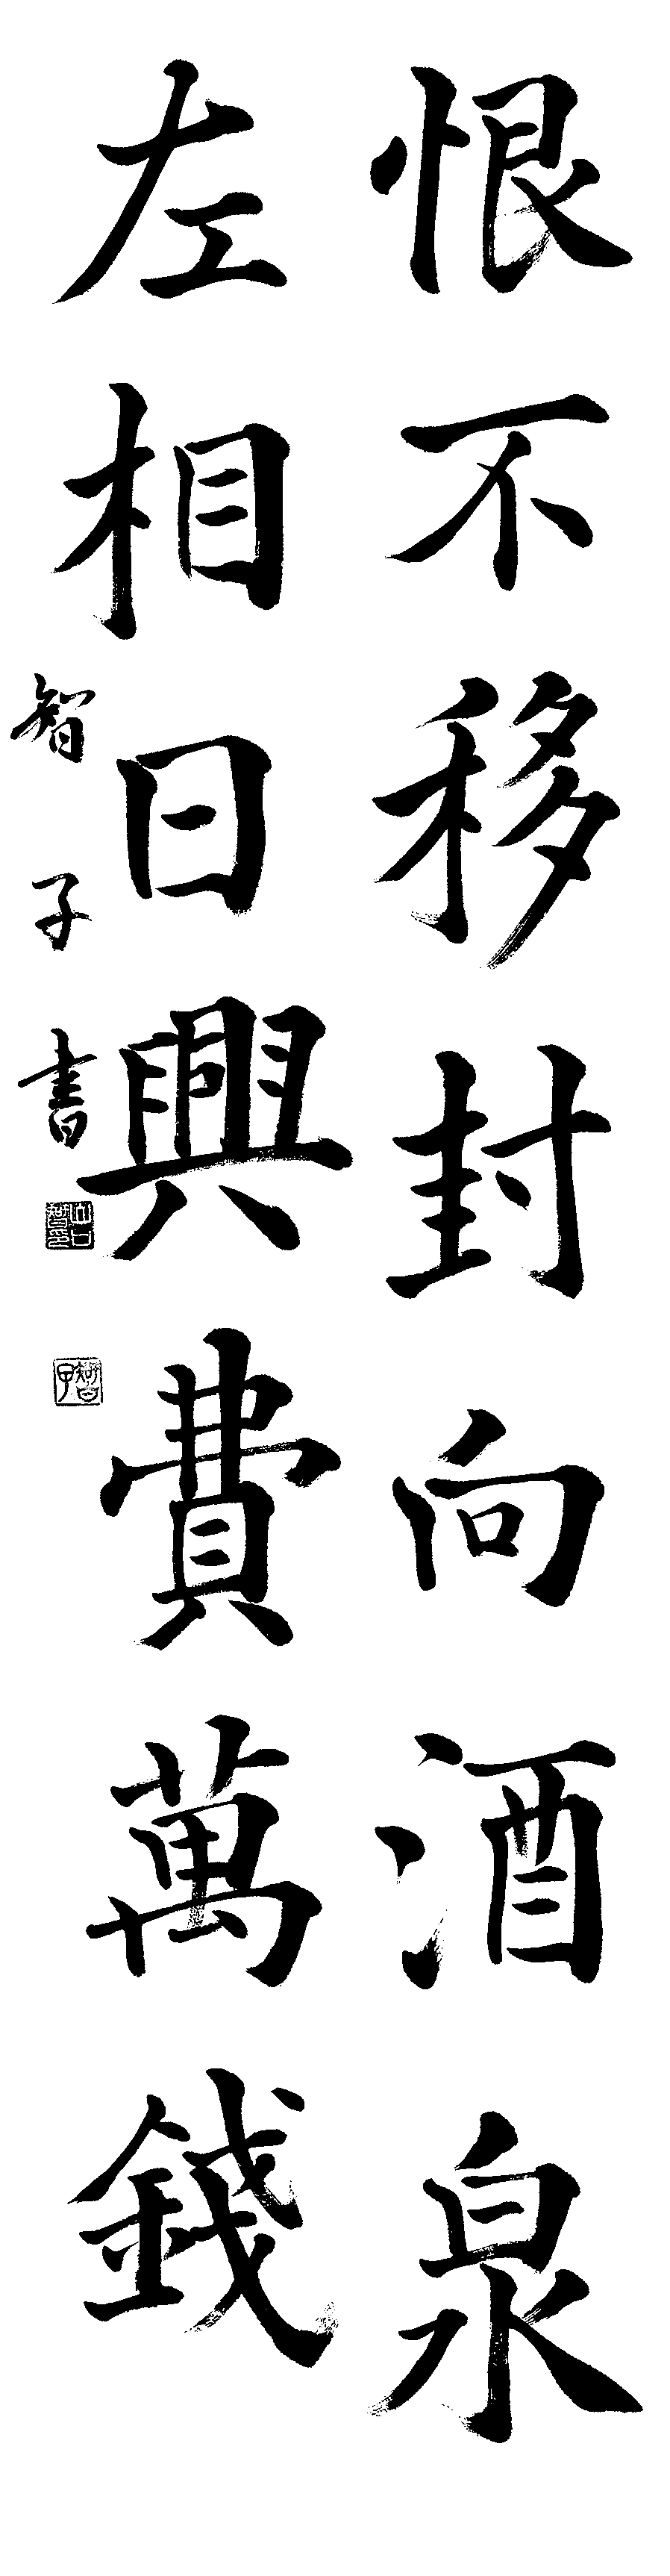 恨不移封向酒泉
左相日興費萬錢
智子書
智子